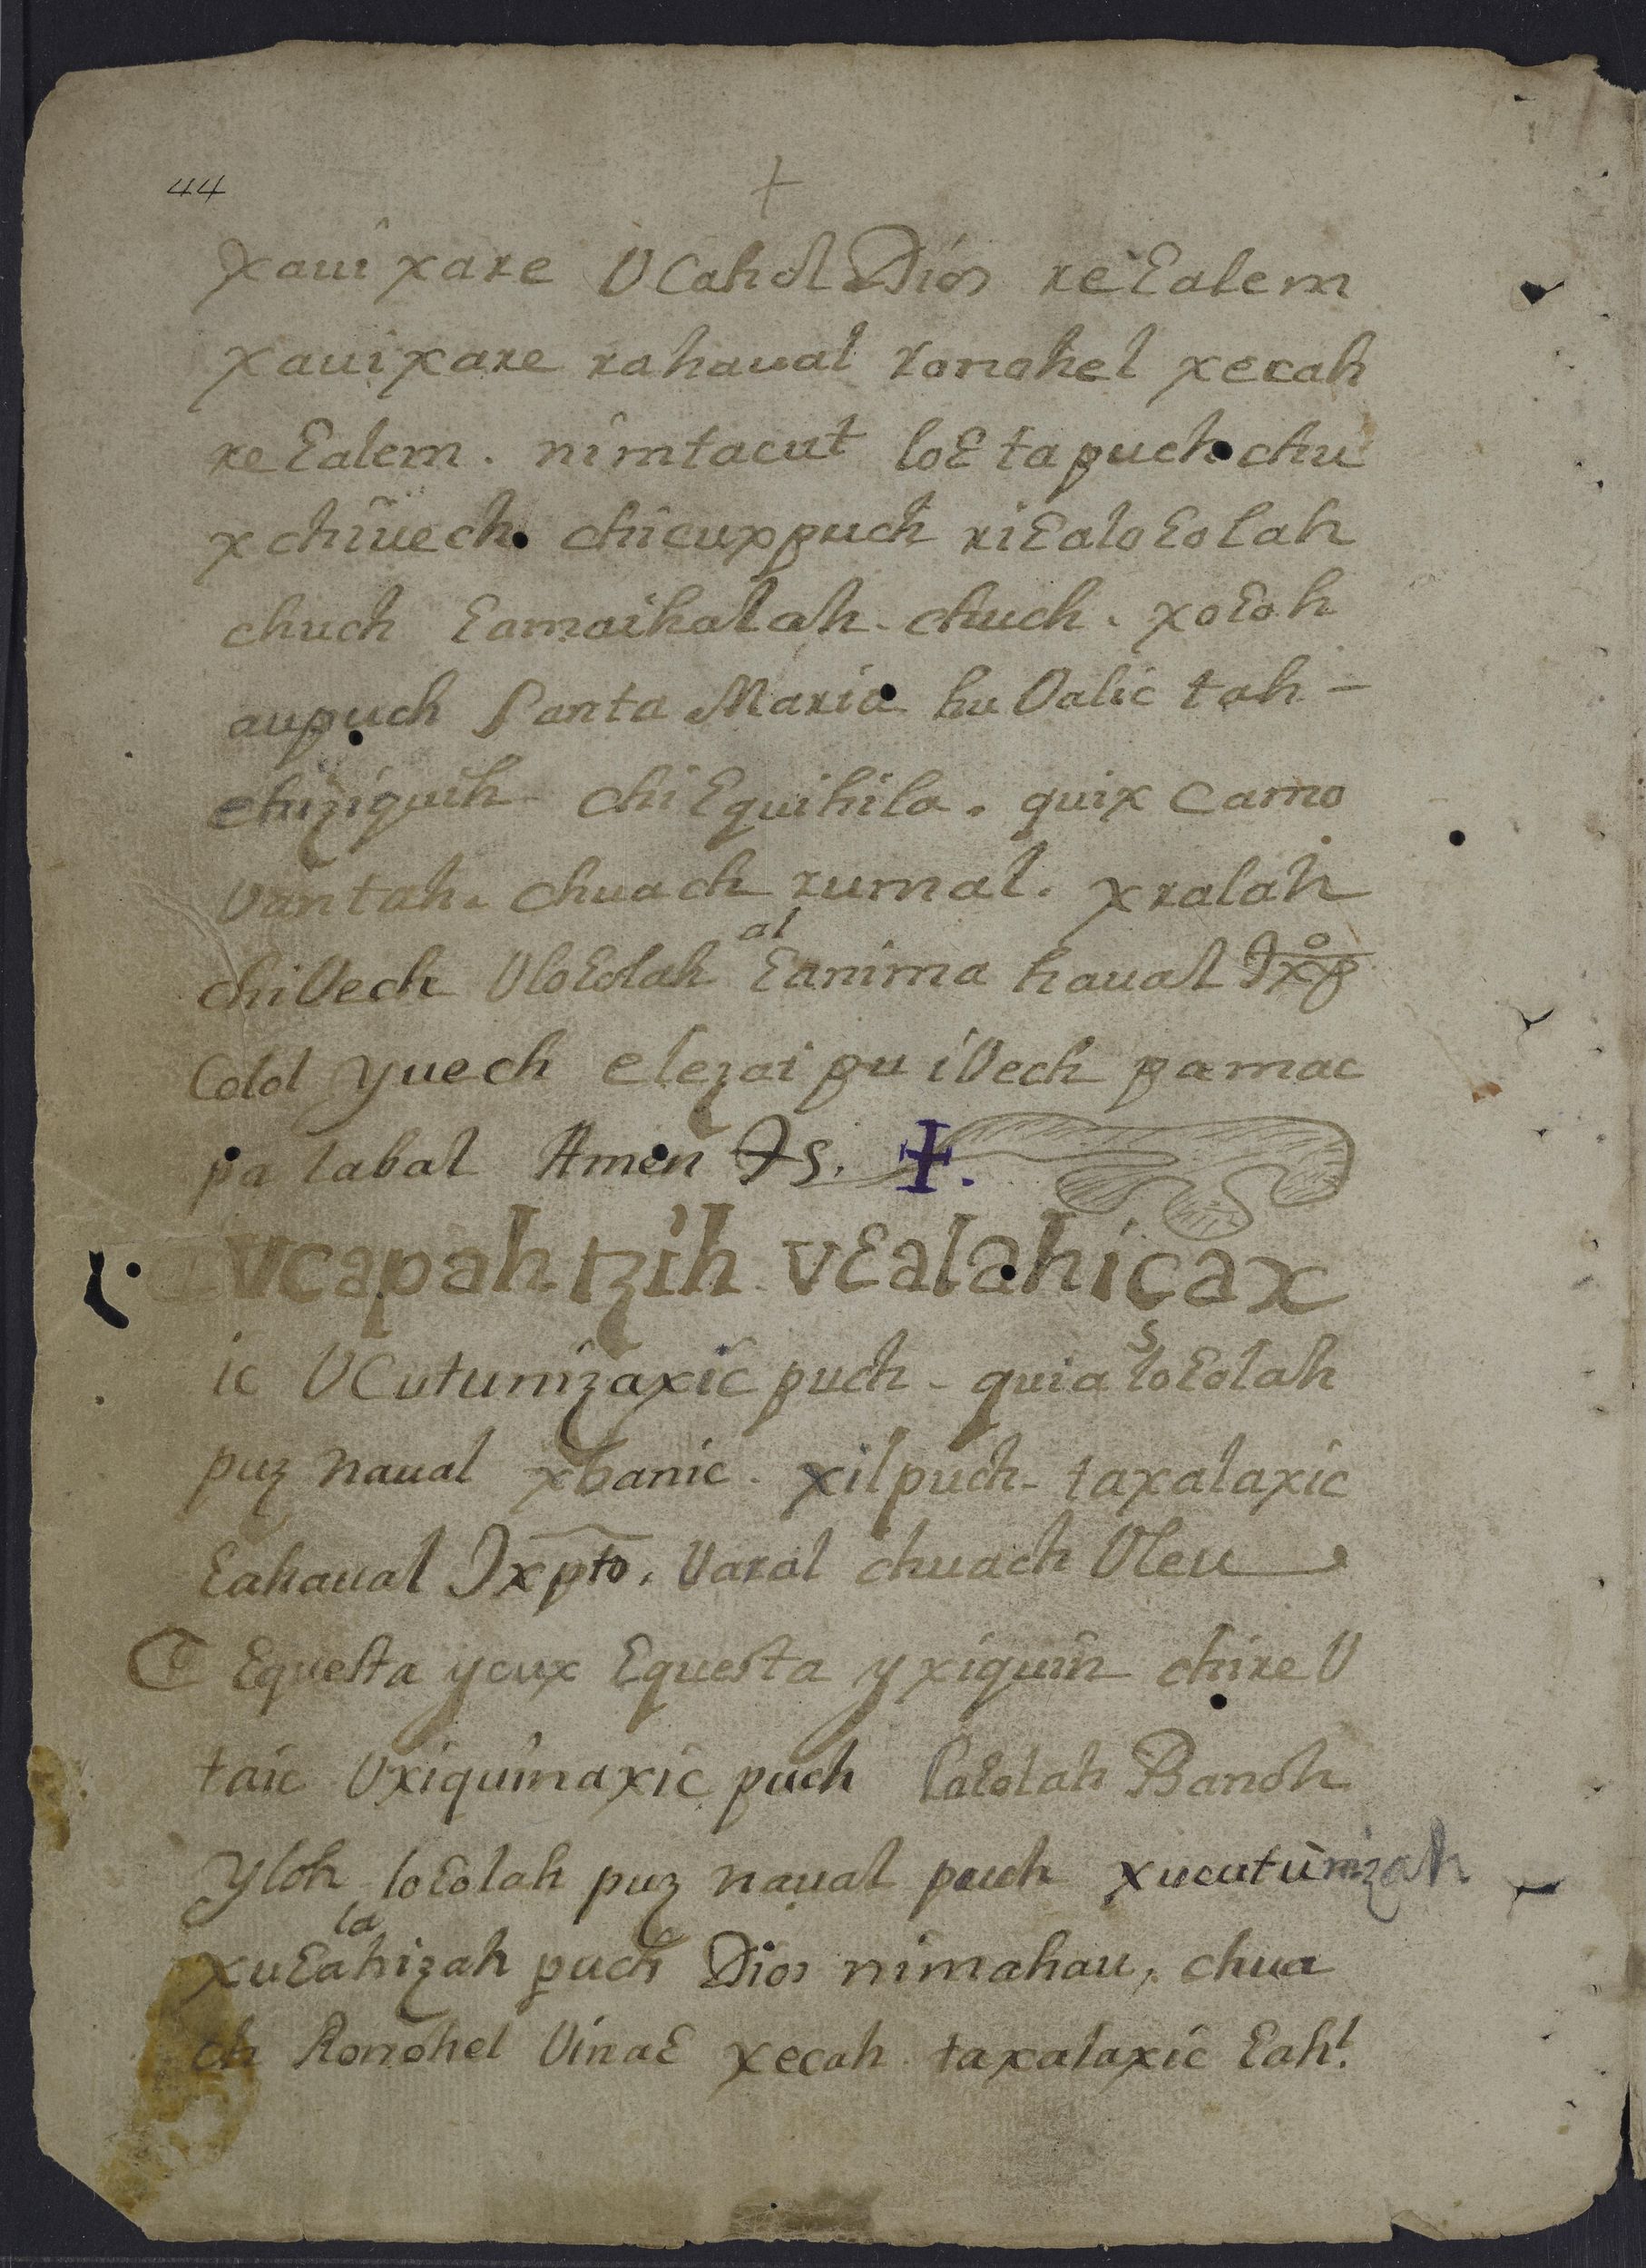 44
+
xaui xare V Cahol Dios reƐalem
xaui xare rahaual ronohel xecah
re Ɛalem. nimtacut loƐ ta puch chu
x chiuech. chicux puch riƐaloƐolah
chuch Ɛamaihalah. chuch. xoƐoh
aupuch Santa Maria hu Valic tah -
chiziquih chiƐquihila. quix Camo
Vantah. chuach rumal. xralah
chiVech VloƐolah Ɛanima haual Jxpº
al
Colol yuech elezai pu iVech pa mac
pa labal Amen Js. ✠.
Vcapah tzih vƐalahiçax
ic VCutunizaxic puch - quia loƐolah
s
puz naual xbanic. xilpuch - taxalaxic
Ɛahaual Jxpto, Varal chuach Vleu
Ɛquesta ycux Ɛquesta yxiquin chire V
taic Vxiquinaxic puch loƐolah Banoh
Yloh loƐolah puz naual puch xucutunizah
la
xuƐahizah puch Dios nimahau, chua
ch Ronohel VinaƐ xecah taxalaxic Ɛahl.